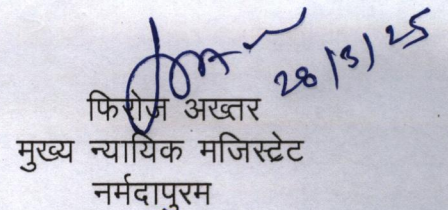 28/3/25
फिरोज अख्तर
मुख्य न्यायिक मजिस्ट्रेट
नर्मदापुरम